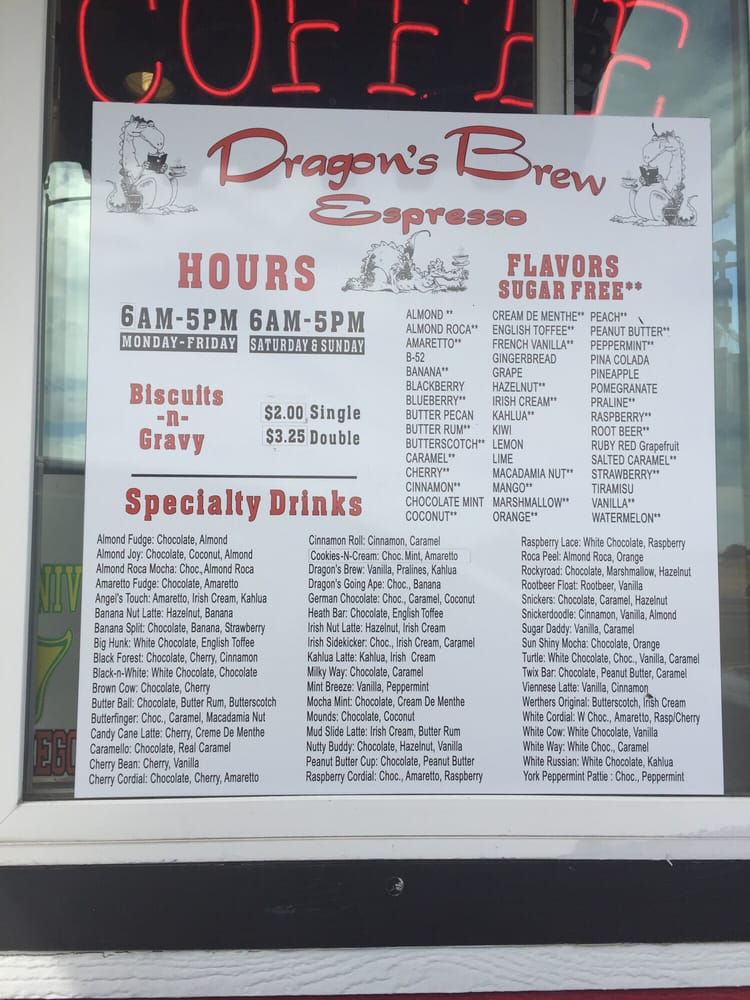 COFFEE
Dragon's Brew
Espresso
HOURS
6AM-5PM 6AM-5PM
MONDAY-FRIDAY SATURDAY & SUNDAY
Biscuits
-n-
Gravy
$2.00 Single
$3.25 Double
FLAVORS
SUGAR FREE**
ALMOND **
ALMOND ROCA**
AMARETTO**
B-52
BANANA**
BLACKBERRY
BLUEBERRY**
BUTTER PECAN
BUTTER RUM**
BUTTERSCOTCH**
CARAMEL**
CHERRY**
CINNAMON**
CHOCOLATE MINT
COCONUT**
CREAM DE MENTHE**
ENGLISH TOFFEE**
FRENCH VANILLA**
GINGERBREAD
GRAPE
HAZELNUT**
IRISH CREAM**
KAHLUA**
KIWI
LEMON
LIME
MACADAMIA NUT**
MANGO**
MARSHMALLOW**
ORANGE**
PEACH**
PEANUT BUTTER**
PEPPERMINT**
PINA COLADA
PINEAPPLE
POMEGRANATE
PRALINE**
RASPBERRY**
ROOT BEER**
RUBY RED Grapefruit
SALTED CARAMEL**
STRAWBERRY**
TIRAMISU
VANILLA**
WATERMELON**
Specialty Drinks
Almond Fudge: Chocolate, Almond
Almond Joy: Chocolate, Coconut, Almond
Almond Roca Mocha: Choc, Almond Roca
Amaretto Fudge: Chocolate, Amaretto
Angel's Touch: Amaretto, Irish Cream, Kahlua
Banana Nut Latte: Hazelnut, Banana
Banana Split: Chocolate, Banana, Strawberry
Big Hunk: White Chocolate, English Toffee
Black Forest: Chocolate, Cherry, Cinnamon
Black-n-White: White Chocolate, Chocolate
Brown Cow: Chocolate, Cherry
Butter Ball: Chocolate, Butter Rum, Butterscotch
Butterfinger: Choc., Caramel, Macadamia Nut
Candy Cane Latte: Cherry, Creme De Menthe
Caramello: Chocolate, Real Caramel
Cherry Bean: Cherry, Vanilla
Cherry Cordial: Chocolate, Cherry, Amaretto
Cinnamon Roll: Cinnamon, Caramel
Cookies-N-Cream: Choc. Mint, Amaretto
Dragon's Brew: Vanilla, Pralines, Kahlua
Dragon's Going Ape: Choc., Banana
German Chocolate: Choc., Caramel, Coconut
Heath Bar: Chocolate, English Toffee
Irish Nut Latte: Hazelnut, Irish Cream
Irish Sidekicker: Choc., Irish Cream, Caramel
Kahlua Latte: Kahlua, Irish Cream
Milky Way: Chocolate, Caramel
Mint Breeze: Vanilla, Peppermint
Mocha Mint: Chocolate, Cream De Menthe
Mounds: Chocolate, Coconut
Mud Slide Latte: Irish Cream, Butter Rum
Nutty Buddy: Chocolate, Hazelnut, Vanilla
Peanut Butter Cup: Chocolate, Peanut Butter
Raspberry Cordial: Choc., Amaretto, Raspberry
Raspberry Lace: White Chocolate, Raspberry
Roca Peel: Almond Roca, Orange
Rockyroad: Chocolate, Marshmallow, Hazelnut
Rootbeer Float: Rootbeer, Vanilla
Snickers: Chocolate, Caramel, Hazelnut
Snickerdoodle: Cinnamon, Vanilla, Almond
Sugar Daddy: Vanilla, Caramel
Sun Shiny Mocha: Chocolate, Orange
Turtle: White Chocolate, Choc., Vanilla, Caramel
Twix Bar: Chocolate, Peanut Butter, Caramel
Viennese Latte: Vanilla, Cinnamon
Werthers Original: Butterscotch, Irish Cream
White Cordial: W Choc., Amaretto, Rasp/Cherry
White Cow: White Chocolate, Vanilla
White Way: White Choc., Caramel
White Russian: White Chocolate, Kahlua
York Peppermint Pattie : Choc., Peppermint